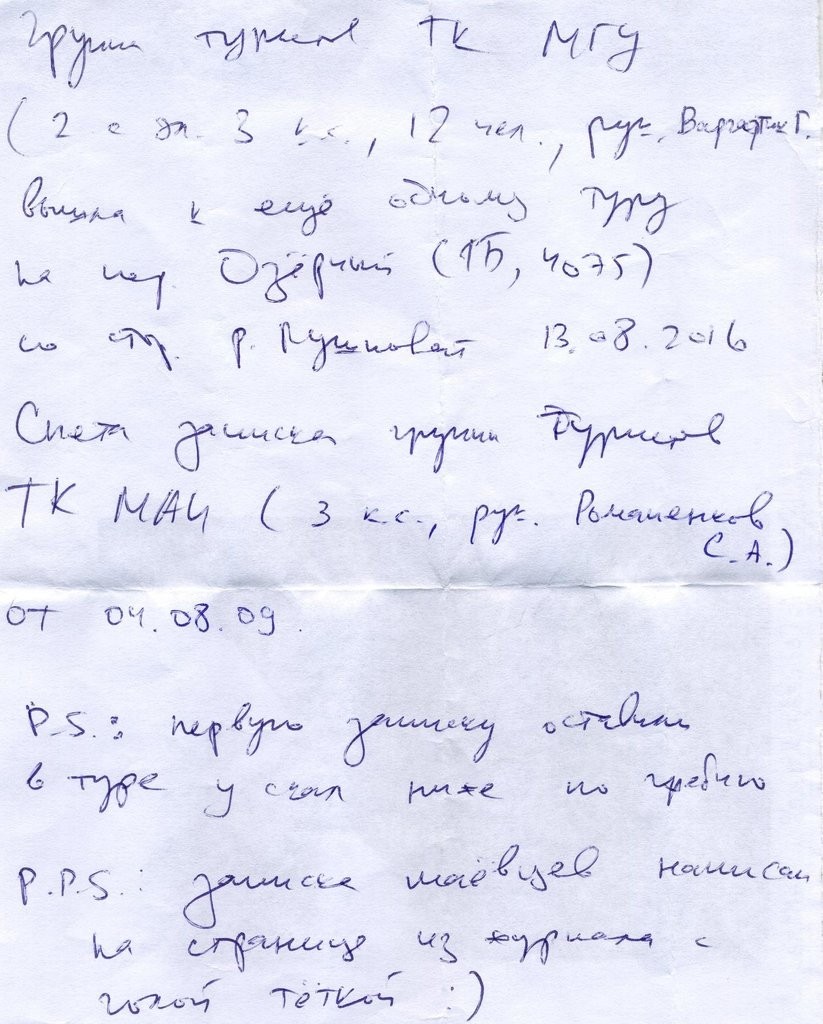 Группа туристов ТК МГУ
(2 с эл. 3 к.с., 12 чел., рук. Г.
вышла к ещё одному туру
на пер. Озёрный (1Б, 4075)
со стр. р. Пушковой 13.08.2016
Снята записка группы туристов
ТК МАИ (3 к.с., рук. Романенков
С.А.)
от 04.08.09.
P.S.: первую записку оставили
в туре у скал ниже по гребню
P.P.S.: записка маёвцев написана
на странице из журнала с
голой тёткой :)